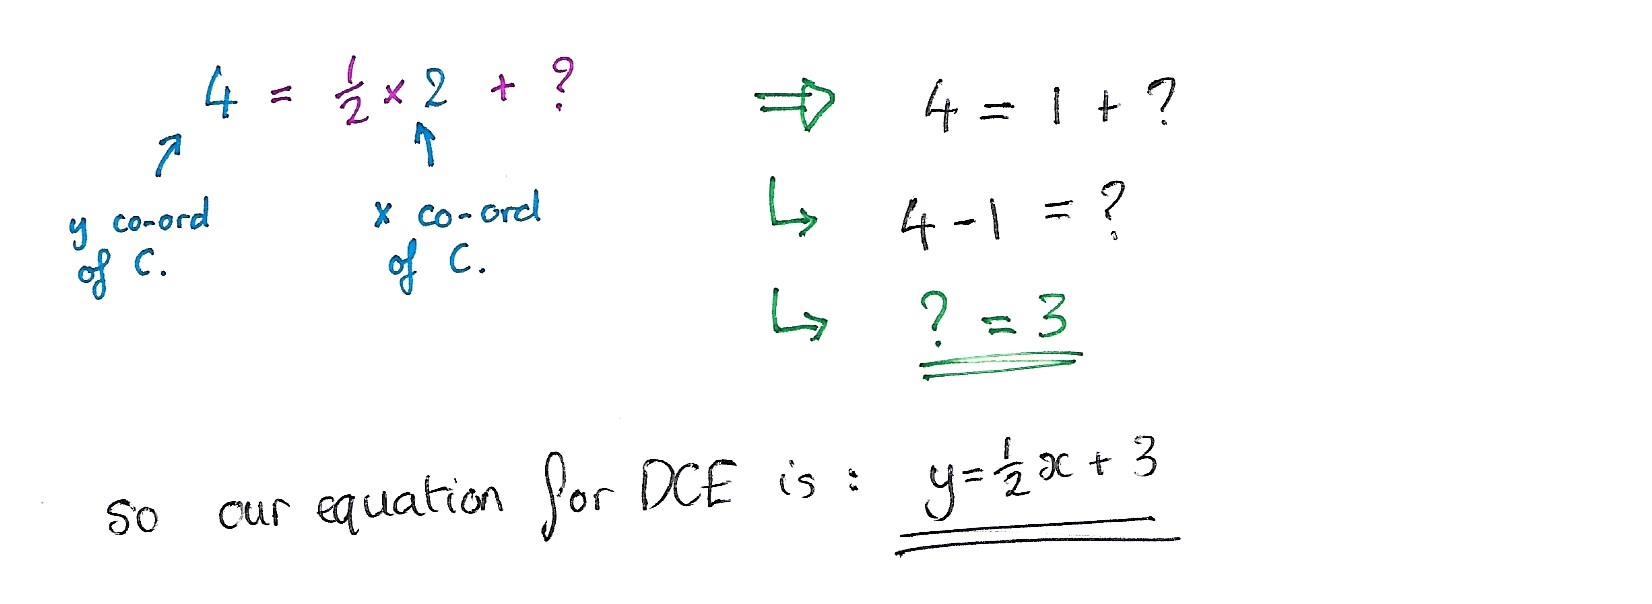 4 = 1/2 × 2 + ?
y co-ord
of C.
x co-ord
of C.
⇒ 4 = 1 + ?
↳ 4 - 1 = ?
↳ ? = 3
so our equation for DCE is : y = 1/2 x + 3